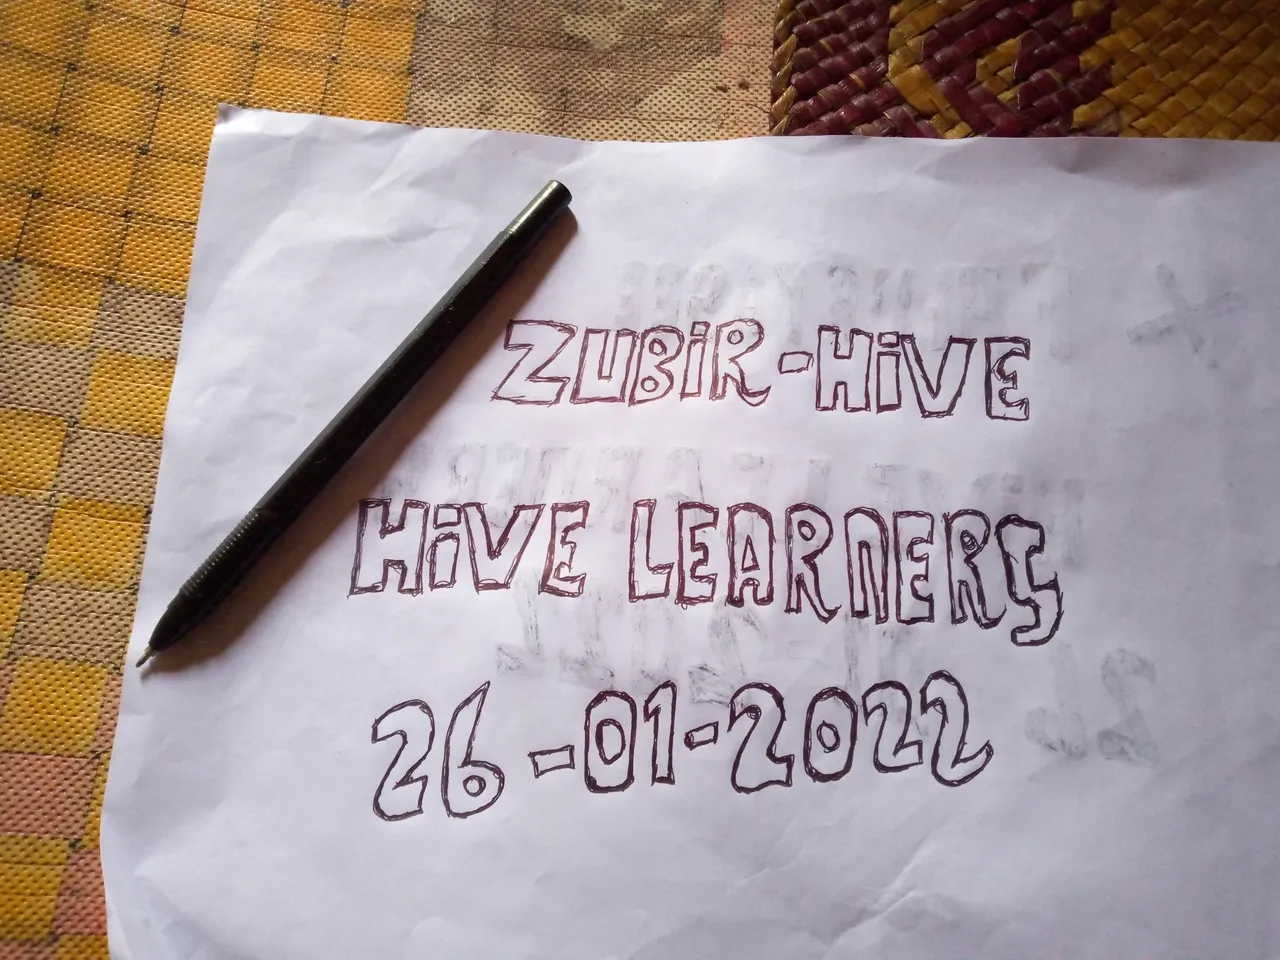 ZUBiR-HiVE
HiVE LEARNERS
26-01-2022